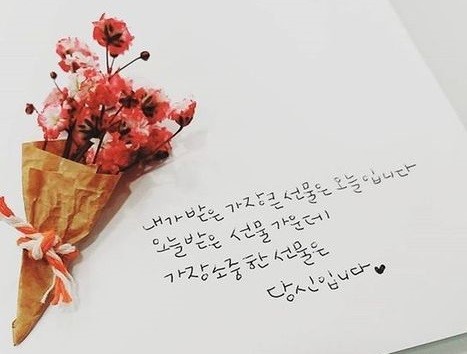 내가 받은 가장 큰 선물은 오늘입니다
오늘 받은 선물 가운데
가장 소중한 선물은
당신입니다♥